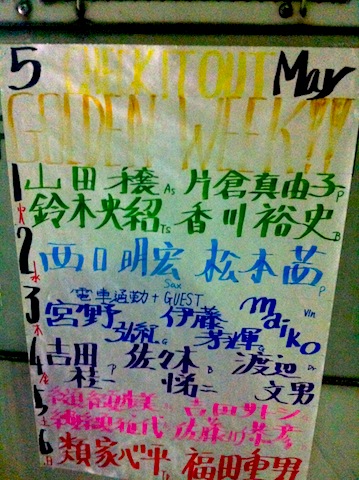 5 CHECK IT OUT May
GOLDEN WEEK!!
1 火 山田穣 As 片倉真由子 P
鈴木央紹 Ts 香川裕史 B
2 水 西口明宏 Sax 松本茜 P
3 木 電車通勤+GUEST
宮野弘紀 G 伊藤芳輝 G maiko Vln
4 金 吉田桂一 P 佐々木悌二 B 渡辺文男 Dr
5 土 吉田サトシ
6 日 類家心平 福田重男